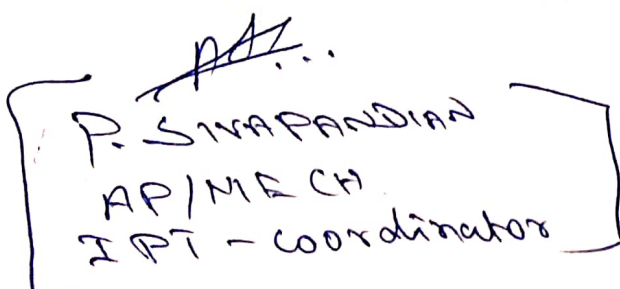 P. SIVAPANDIAN
AP/MECH
IPT - coordinator